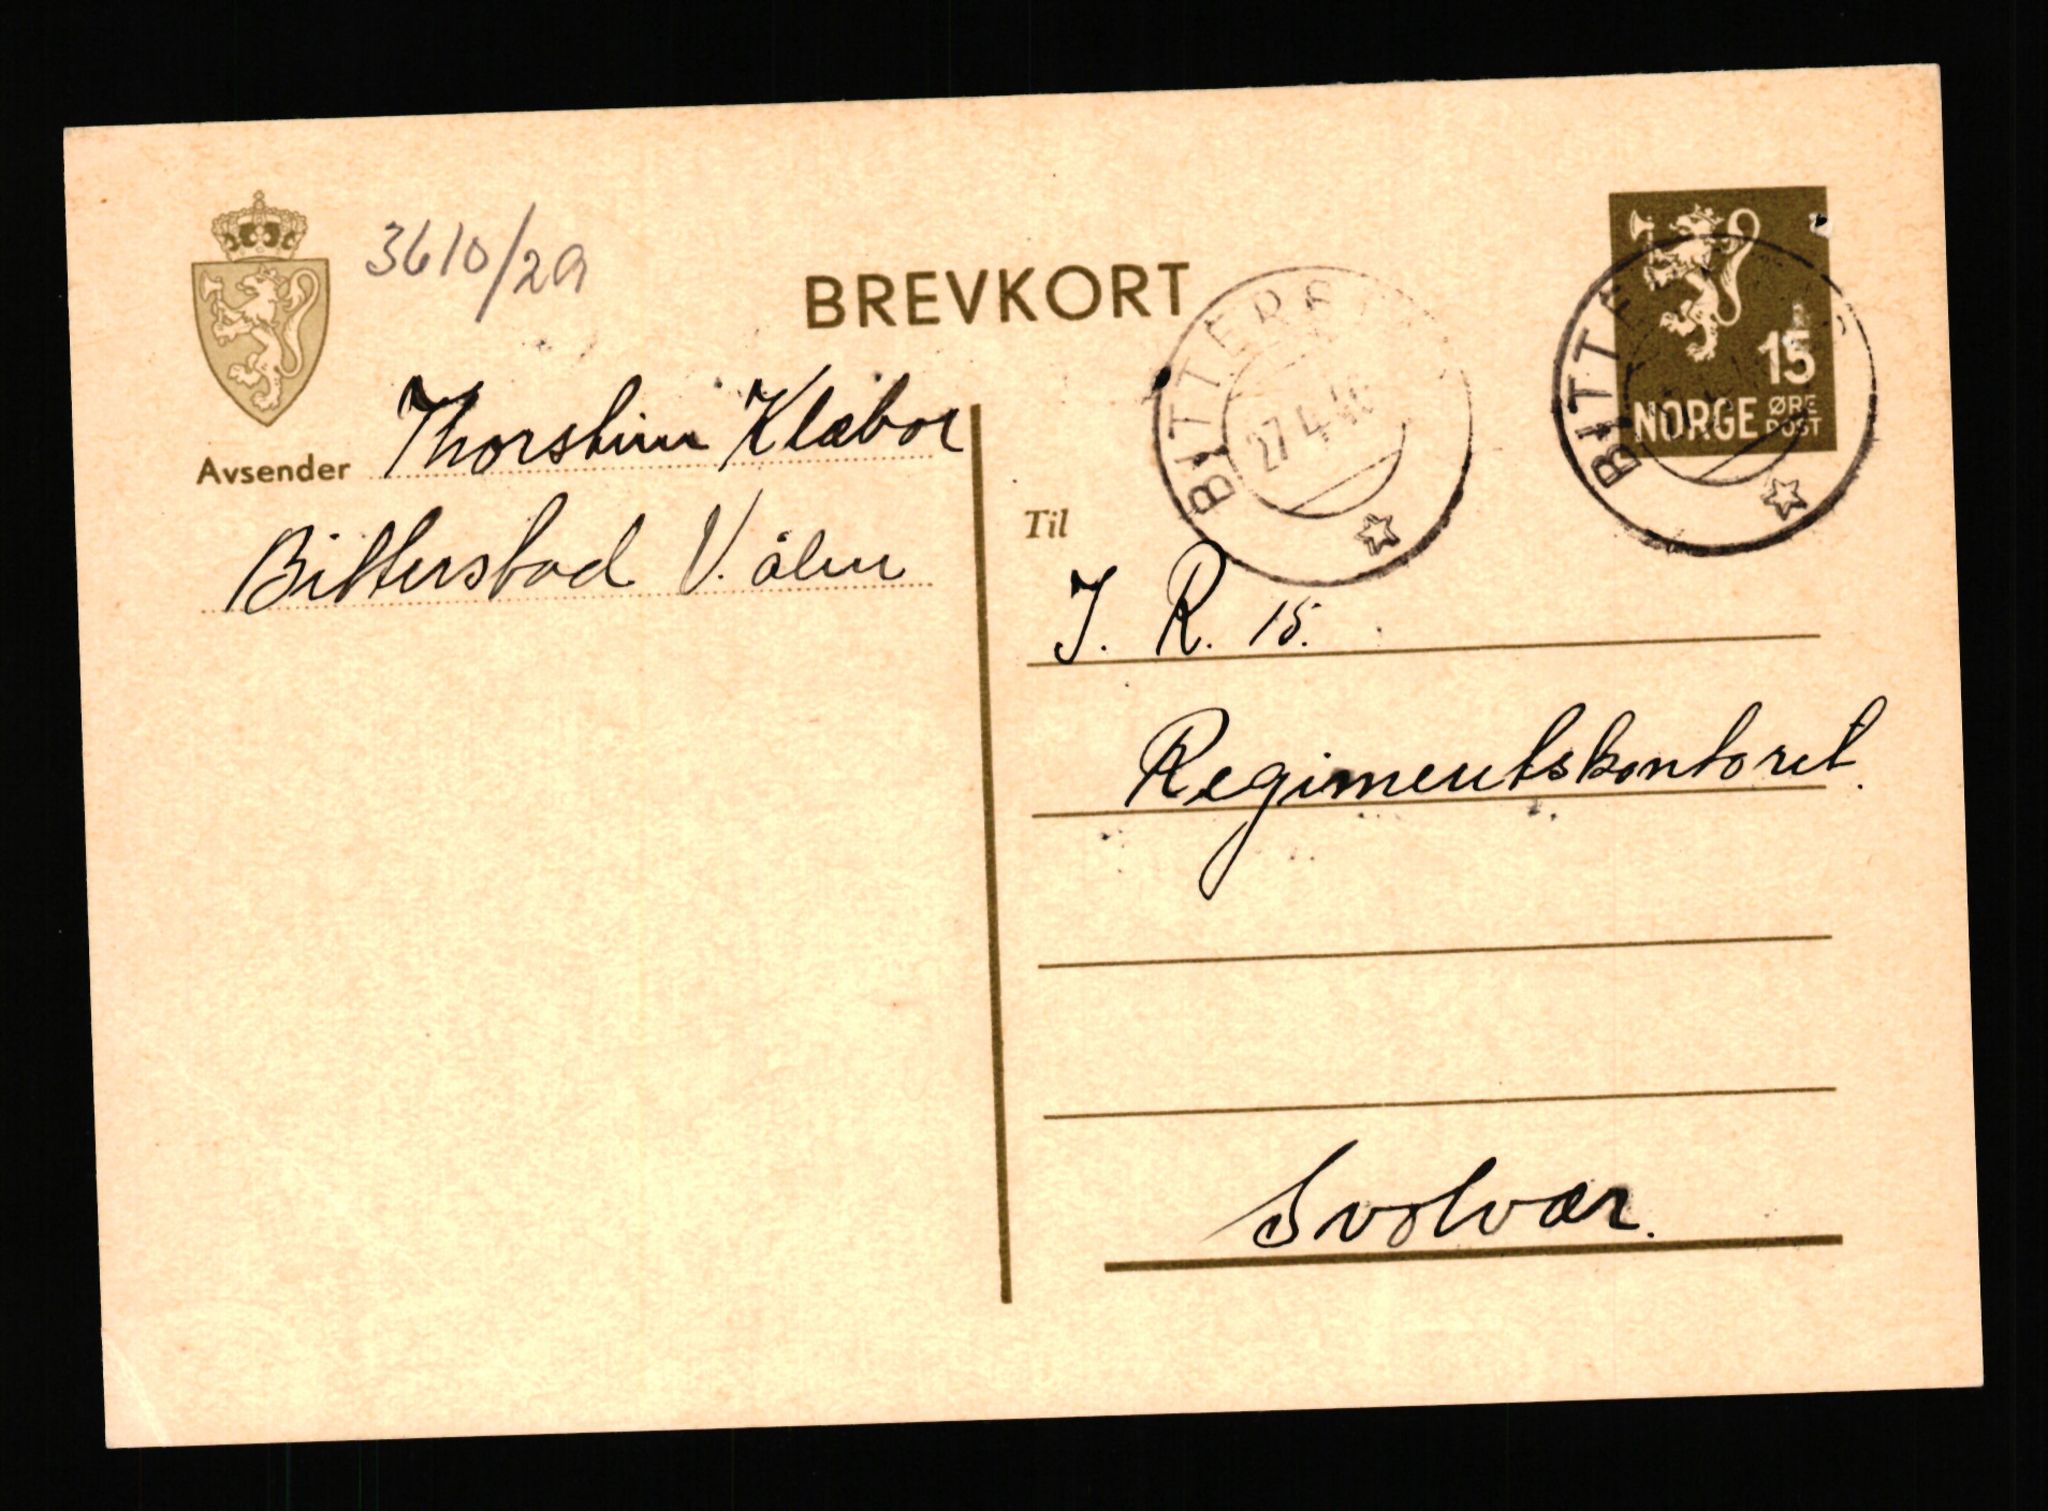 3610/29
BREVKORT
BITTERST
27.4.4
BITTE
15
NORGE ØRE
POST
Avsender Thorstein Klæboe
Bitterstad V. ålen
Til
J. R. 15.
Regimentskontoret.
Svolvær.